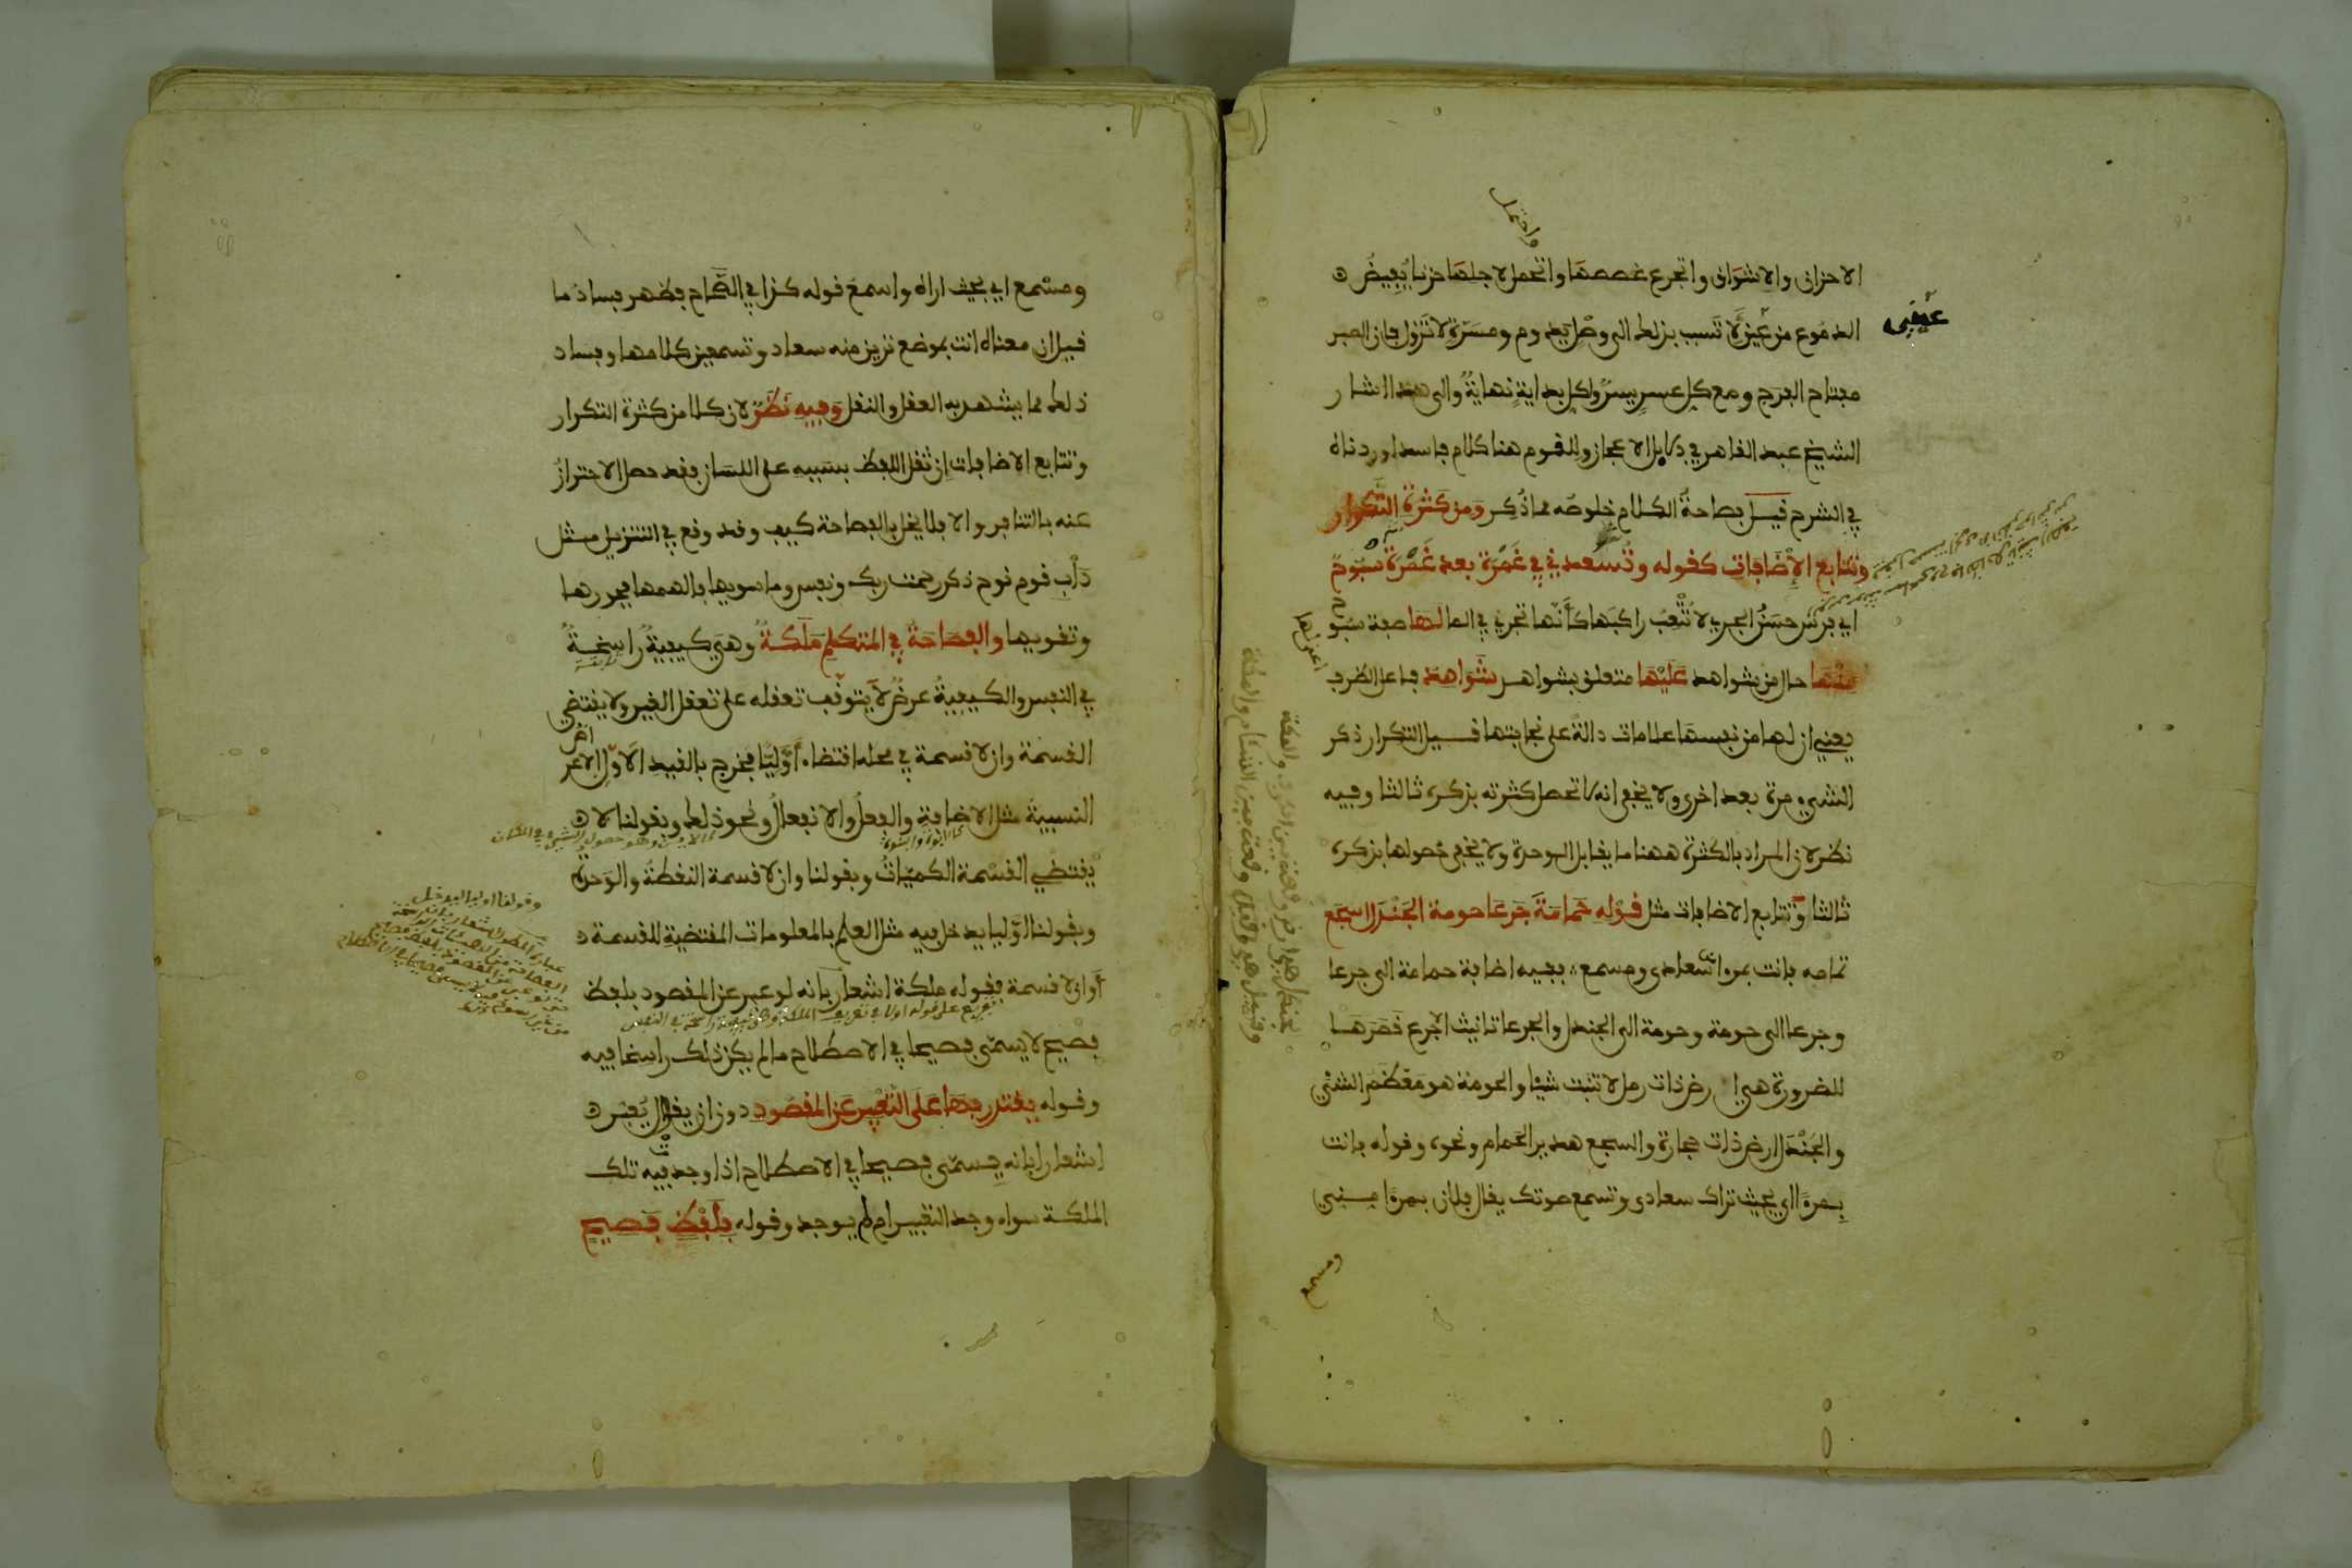 الاحزان والاشواق واتجرع غصصها واتحمل لاجلها حزنا يفيض
واحتمل
الدموع من عيني لاتسبب بذلك الى وصل يدوم ومسرة لا تزول فان الصبر
عيني
مفتاح الفرج ومع كل عسر يسر ولكل بداية نهاية والى هذا اشار
الشيخ عبد القاهر في دلايل الاعجاز وللقوم هنا كلام فاسد اوردناه
في الشرح قيل فصاحة الكلام خلوصه مما ذكر ومن كثرة التكرار
وتتابع الاضافات كقوله وتسعدني في غمرة بعد غمرة سبوح
اي فرس حسن الجري لا تتعب راكبها كأنها تجري في الما لها صفة سبوح
منها حال من شواهد عليها متعلق بشواهد شواهد فاعل الظرف
اعني لها
يعني ان لها من نفسها علامات دالة على نجابتها قيل التكرار ذكر
الشيء مرة بعد اخرى ولا يخفى انه لا تحصل كثرته بذكره ثالثا وفيه
نظر لان المراد بالكثرة ههنا ما يقابل الوحدة ولا يخفى حصولها بذكره
ثالثا وتتابع الاضافات مثل قوله حمامة جرعا حومة الجندل اسجع
تمامه فانت بمرءا سعادى ومسمع ففيه اضافة حمامة الى جرعا
وجرعا الى حومة وحومة الى الجندل والجرعا تانيث الاجرع قصرها
للضرورة هي ارض ذات رمل لا تنبت شيئا والحومة هو معظم الشئ
والجندل ارض ذات حجارة والسجع هدير الحمام ونحوه وقوله فانت
بمرءا اي بحيث تراك سعادى وتسمع صوتك يقال فلان بمرءا مني
ومسمع
ومسمع اي بحيث اراه واسمع قوله كذا في الصحاح فظهر فساد ما
قيل ان معناه انت بموضع ترين منه سعاد وتسمعين كلامها وفساد
ذلك مما يشهد به العقل والنقل وفيه نظر لان كلا من كثرة التكرار
وتتابع الاضافات ان ثقل اللفظ بسببه على اللسان فقد حصل الاحتراز
عنه بالتنافر والا فلا يخل بالفصاحة كيف وقد وقع في التنزيل مثل
دأب قوم نوح ذكر رحمت ربك ونفس وما سويها فالهمها فجورها
وتقويها والفصاحة في المتكلم ملكة وهي كيفية راسخة
في النفس والكيفية عرض لا يتوقف تعقله على تعقل الغير ولا يقتضي
القسمة وان لا قسمة في محله اقتضاء أوليا فخرج بالقيد الاول الاعراض
النسبية مثل الاضافة والفعل والانفعال ونحو ذلك وبقولنا لا
يقتضي القسمة الكميات وبقولنا وان لا قسمة النقطة والوحدة
وبقولنا اوليا يدخل فيه مثل العلم بالمعلومات المقتضية للقسمة
أوان لا قسمة فقوله ملكة اشعار بانه لو عبر عن المقصود بلفظ
فصيح لا يسمى فصيحا في الاصطلاح ما لم يكن ذلك راسخا فيه
وقوله يقتدر بها على التعبير عن المقصود دون ان يقول يعبر
اشعارا بانه يسمى فصيحا في الاصطلاح اذا وجد فيه تلك
الملكة سواء وجد التعبير ام لم يوجد وقوله بلفظ فصيح